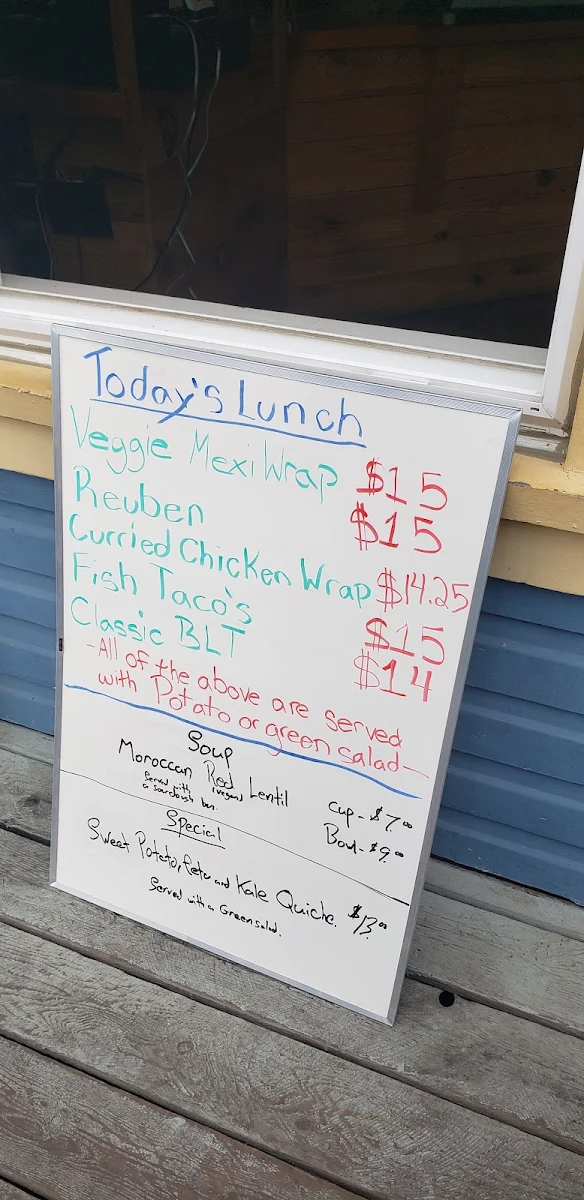 Today's Lunch
Veggie Mexi Wrap $15
Reuben $15
Curried Chicken Wrap $14.25
Fish Taco's $15
Classic BLT $14
-All of the above are served
with Potato or green salad-
Soup
Moroccan Red Lentil Cup - $7.00
(vegan)
Served with
a sourdough bun. Bowl - $9.00
Special
Sweet Poteto, Feta and Kale Quiche. $13.00
Served with a Green salad.